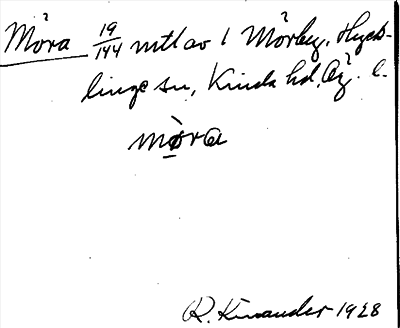 Möra 19/144 mtl av 1 Mörby, Hyck-
linge sn, Kinda hd, Ög. l.
mòra
R. Kinander 1928